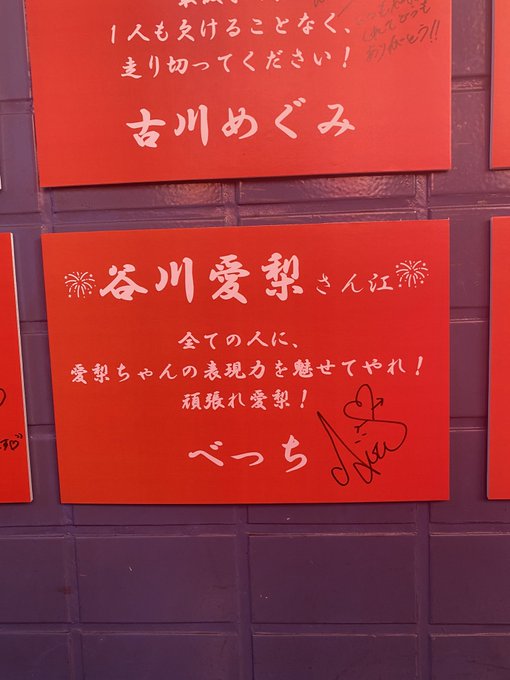 1人も欠けることなく、
走り切ってください!
古川めぐみ
ありがとう!!
谷川愛梨さん江
全ての人に、
愛梨ちゃんの表現力を魅せてやれ!
頑張れ愛梨!
べっち